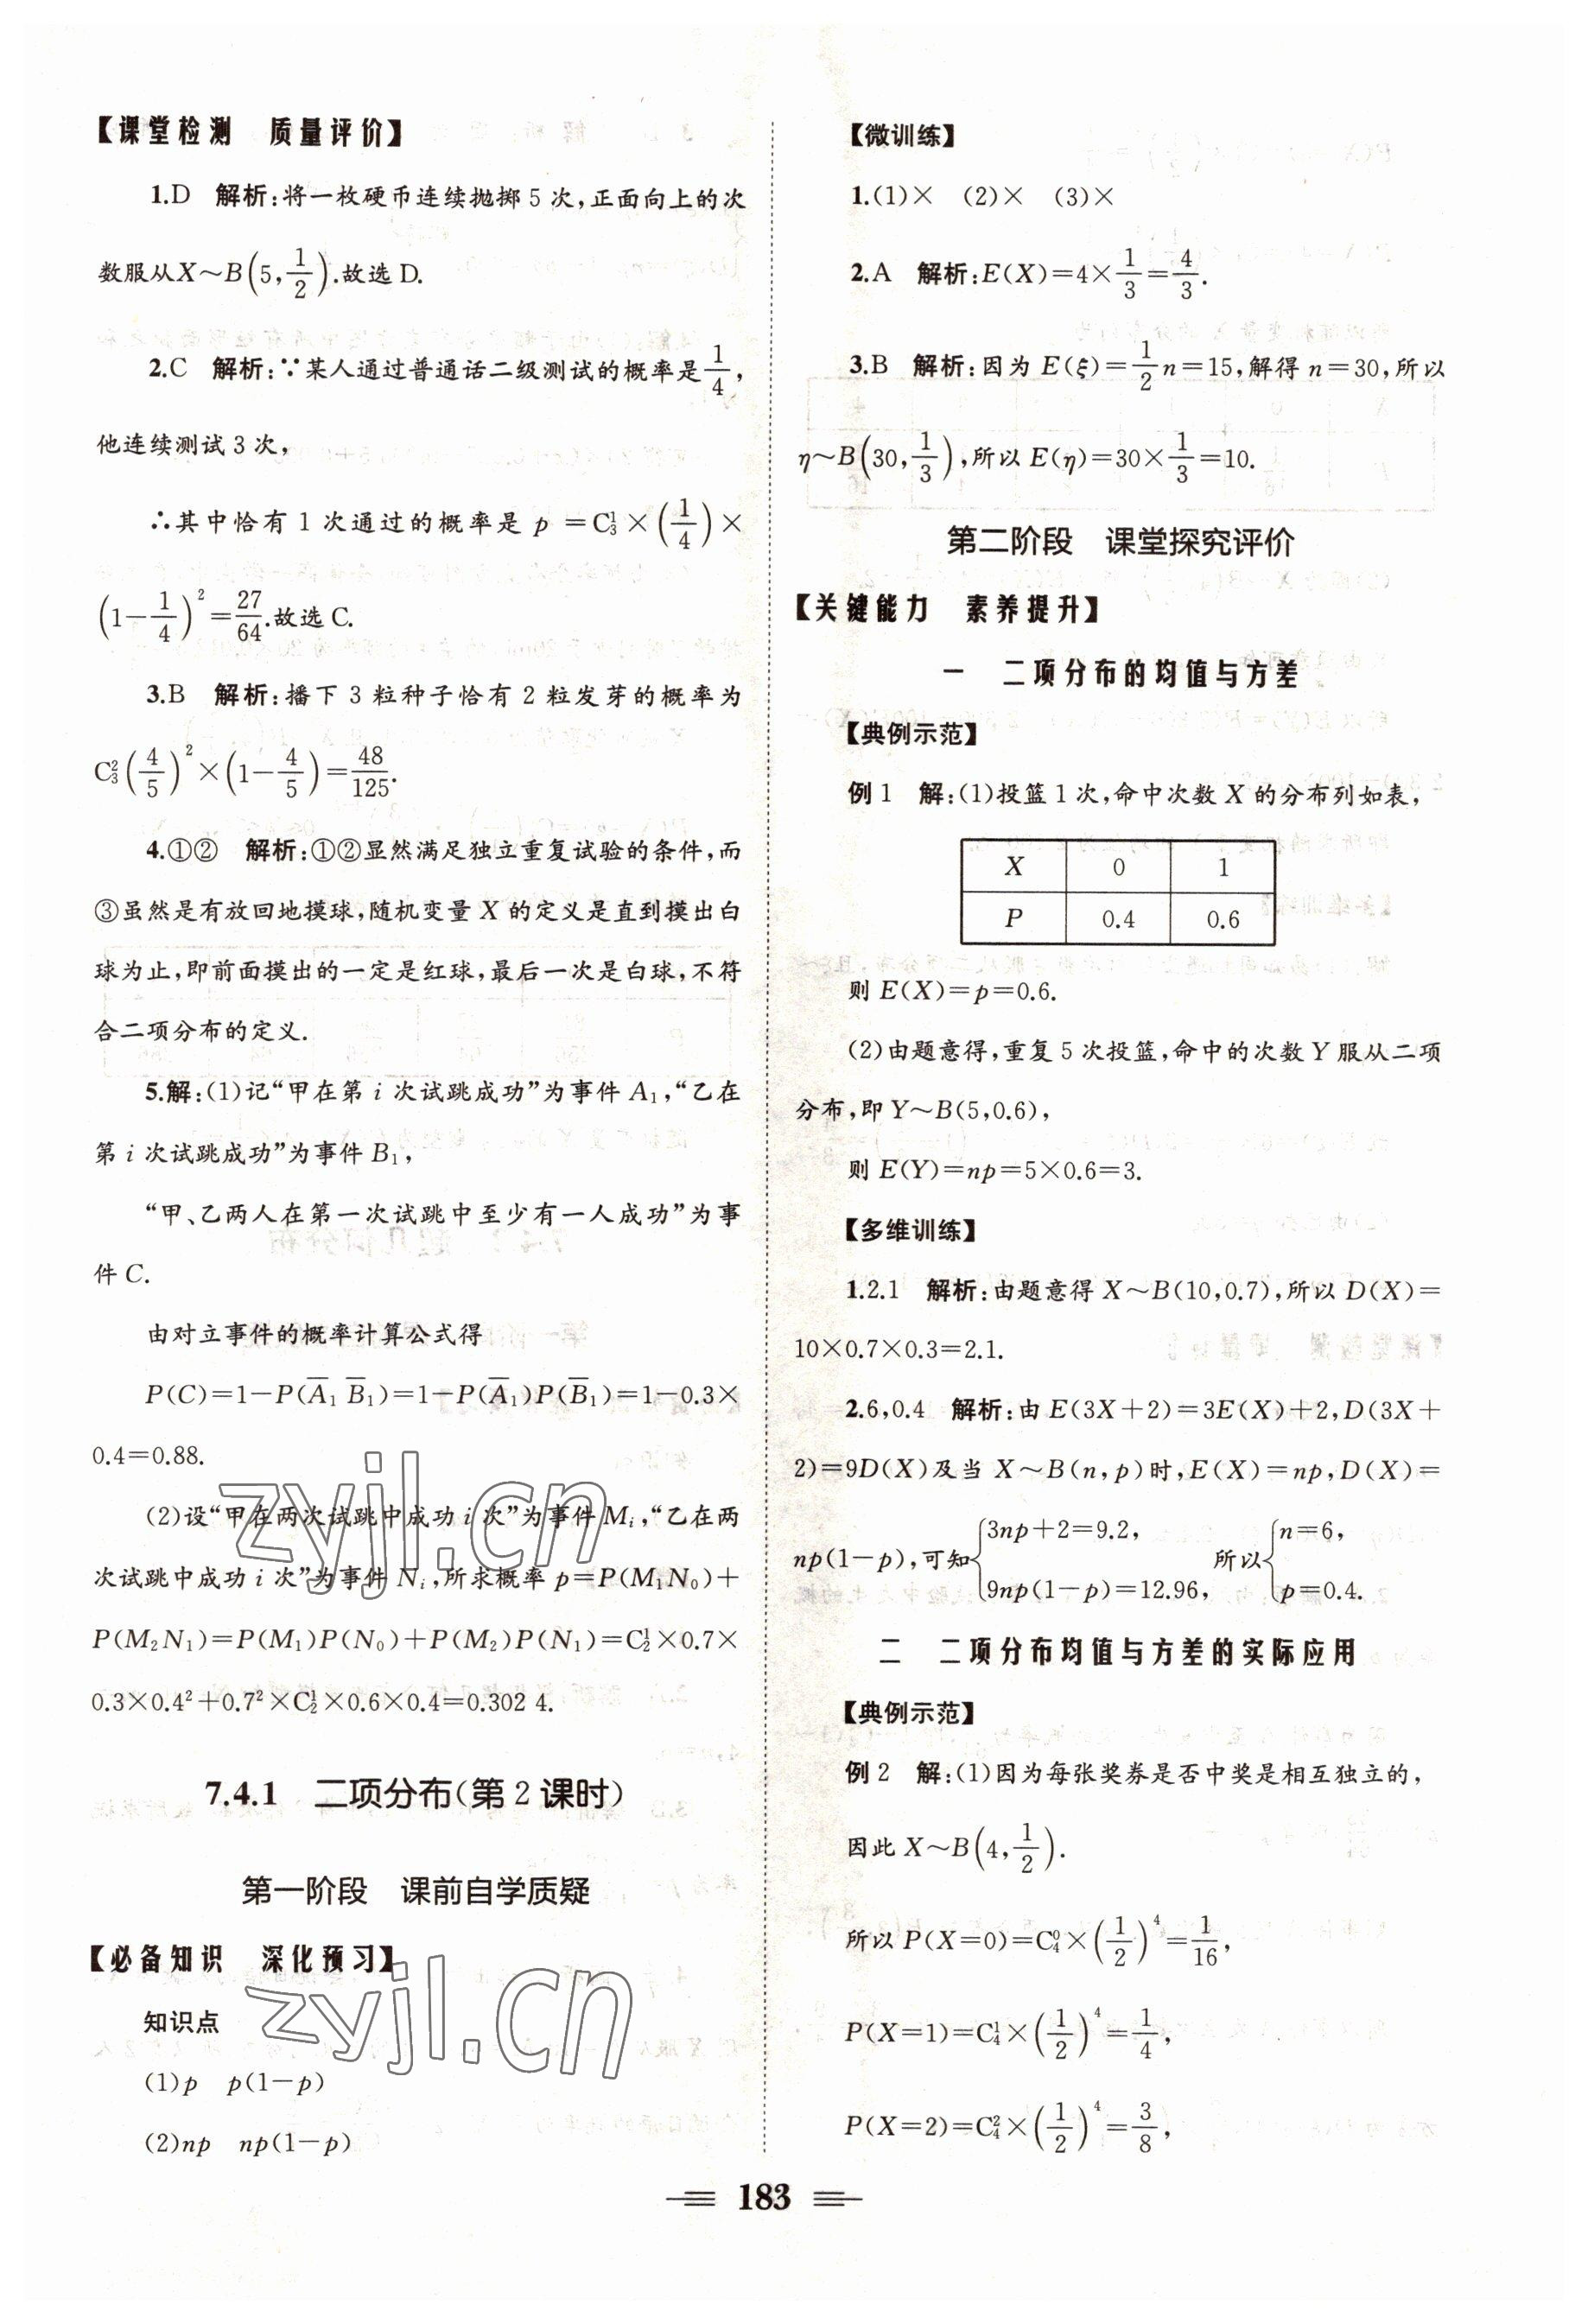 【课堂检测　质量评价】
1.D　解析:将一枚硬币连续抛掷 5 次,正面向上的次
数服从X~B(5,1/2).故选 D.
2.C　解析:∵某人通过普通话二级测试的概率是1/4,
他连续测试 3 次,
∴其中恰有 1 次通过的概率是 p =C₃¹×(1/4)×
(1-1/4)²=27/64.故选 C.
3.B　解析:播下 3 粒种子恰有 2 粒发芽的概率为
C₃²(4/5)²×(1-4/5)=48/125.
4.①②　解析:①②显然满足独立重复试验的条件,而
③虽然是有放回地摸球,随机变量 X 的定义是直到摸出白
球为止,即前面摸出的一定是红球,最后一次是白球,不符
合二项分布的定义.
5.解:(1)记“甲在第 i 次试跳成功”为事件 A₁,“乙在
第 i 次试跳成功”为事件 B₁,
“甲、乙两人在第一次试跳中至少有一人成功”为事
件 C.
由对立事件的概率计算公式得
P(C)=1-P(A̅₁ B̅₁)=1-P(A̅₁)P(B̅₁)=1-0.3×
0.4=0.88.
(2)设“甲在两次试跳中成功 i 次”为事件 Mᵢ,“乙在两
次试跳中成功 i 次”为事件 Nᵢ,所求概率 p=P(M₁N₀)+
P(M₂N₁)=P(M₁)P(N₀)+P(M₂)P(N₁)=C₂¹×0.7×
0.3×0.4²+0.7²×C₂¹×0.6×0.4=0.302 4.
7.4.1　二项分布(第 2 课时)
第一阶段　课前自学质疑
【必备知识　深化预习】
知识点
(1)p　p(1-p)
(2)np　np(1-p)
【微训练】
1.(1)×　(2)×　(3)×
2.A　解析:E(X)=4×1/3=4/3.
3.B　解析:因为 E(ξ)=1/2n=15,解得 n=30,所以
η~B(30,1/3),所以 E(η)=30×1/3=10.
第二阶段　课堂探究评价
【关键能力　素养提升】
一　二项分布的均值与方差
【典例示范】
例 1　解:(1)投篮 1 次,命中次数 X 的分布列如表,
X　0　1
P　0.4　0.6
则 E(X)=p=0.6.
(2)由题意得,重复 5 次投篮,命中的次数 Y 服从二项
分布,即 Y~B(5,0.6),
则 E(Y)=np=5×0.6=3.
【多维训练】
1.2.1　解析:由题意得 X~B(10,0.7),所以 D(X)=
10×0.7×0.3=2.1.
2.6,0.4　解析:由 E(3X+2)=3E(X)+2,D(3X+
2)=9D(X)及当 X~B(n,p)时,E(X)=np,D(X)=
np(1-p),可知{3np+2=9.2, 9np(1-p)=12.96, 所以{n=6, p=0.4.
二　二项分布均值与方差的实际应用
【典例示范】
例 2　解:(1)因为每张奖券是否中奖是相互独立的,
因此 X~B(4,1/2).
所以 P(X=0)=C₄⁰×(1/2)⁴=1/16,
P(X=1)=C₄¹×(1/2)⁴=1/4,
P(X=2)=C₄²×(1/2)⁴=3/8,
183
zyjl.cn
zyjl.cn